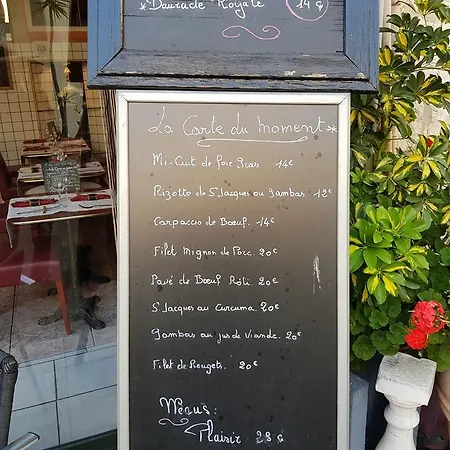 *Daurade Royale 14€
La Carte du moment*
Mi-Cuit de Foie Gras 14€
Rizotto de St Jacques ou Gambas. 12€
Carpaccio de Bœuf. 14€
Filet Mignon de Porc. 20€
Pavé de Bœuf Rôti. 20€
St Jacques au Curcuma. 20€
Gambas au jus de Viande. 20€
Filet de Rougets. 20€
Menus:
Plaisir 28€